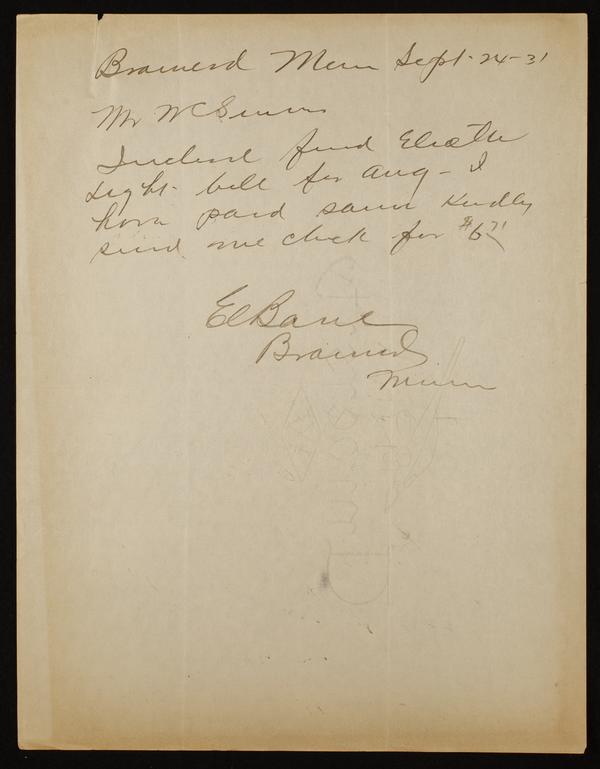 Brainerd Minn Sept-24-31
Mr W C
Inclosed find Electric
Light-bill for Aug-I
have paid same Kindly
send me check for $6 71
Brainerd
Minn